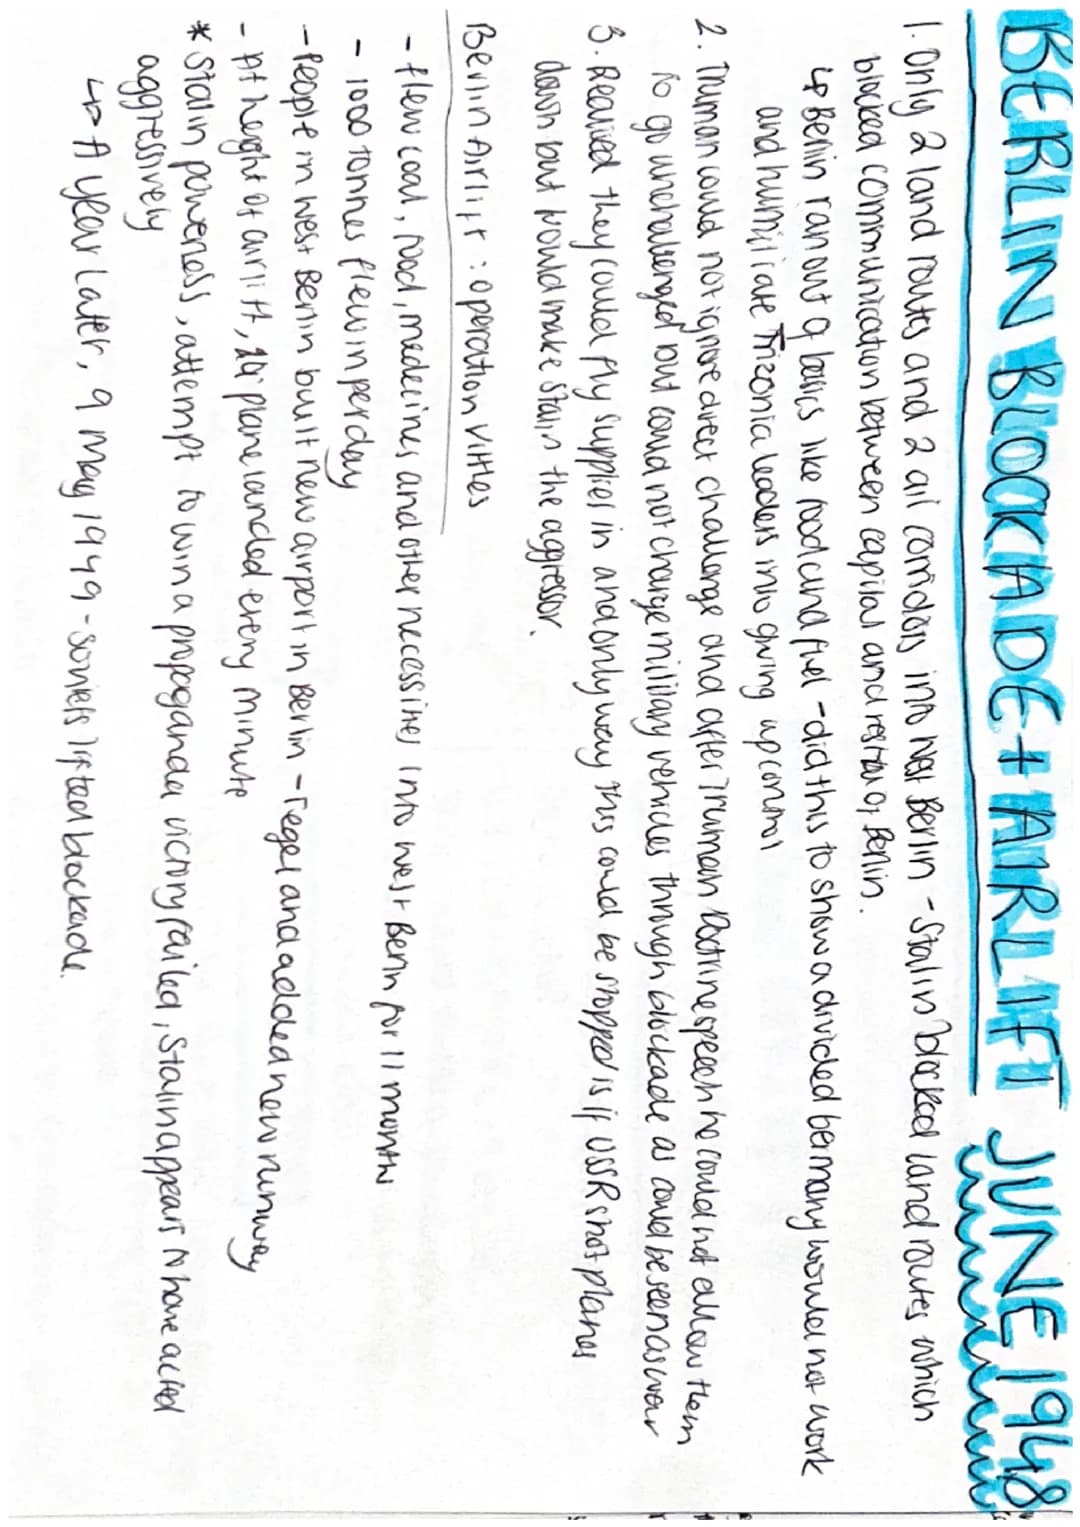 BERLIN BLOCKADE + AIRLIFT JUNE 1948
1. Only 2 land routes and 2 air corridors into West Berlin - Stalin blocked land routes which
blocked communication between capital and rest of Berlin.
↳ Berlin ran out of basics like food and fuel - did this to show a divided Germany would not work
and humiliate Trizonia leaders into giving up control
2. Truman could not ignore direct challenge and after Truman Doctrine speech he could not allow them
to go unchallenged but could not charge military vehicles through blockade as could be seen as war
3. Realised they could fly supplies in and only way this could be stopped is if USSR shot planes
down but would make Stalin the aggressor.
Berlin Airlift : operation vittles
- flew coal, food, medecines and other necessities into west Berlin for 11 months
- 1000 tonnes flew in per day
- People in west Berlin built new airport in Berlin - Tegel and added new runway
- At height of airlift, plane landed every minute
* Stalin powerless, attempt to win a propaganda victory failed, Stalin appears to have acted
aggressively
↳ A year later, 9 May 1949 - soviets lifted blockade.